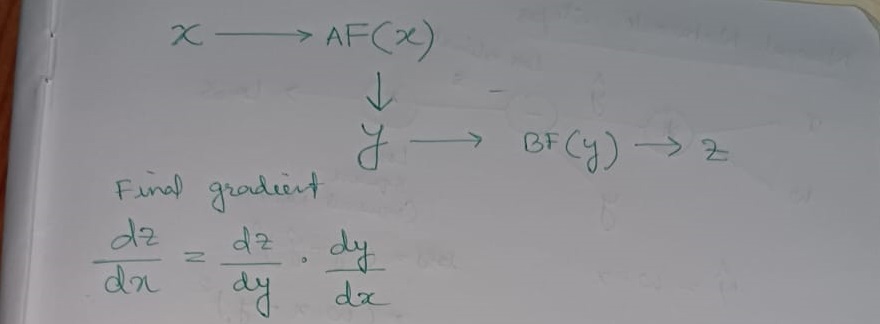 x → AF(x)
↓
y → BF(y) → z
Final gradient
dz/dx = dz/dy · dy/dx